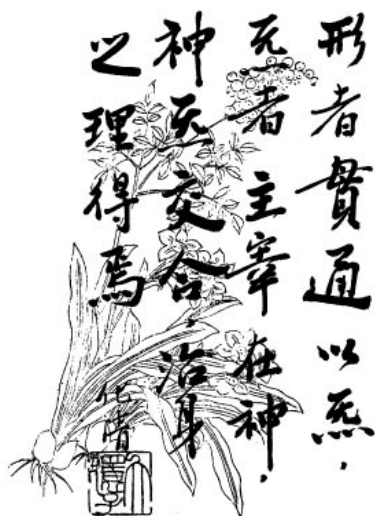 形者貫通以炁，
炁者主宰在神，
神炁交合，治身
之理得焉